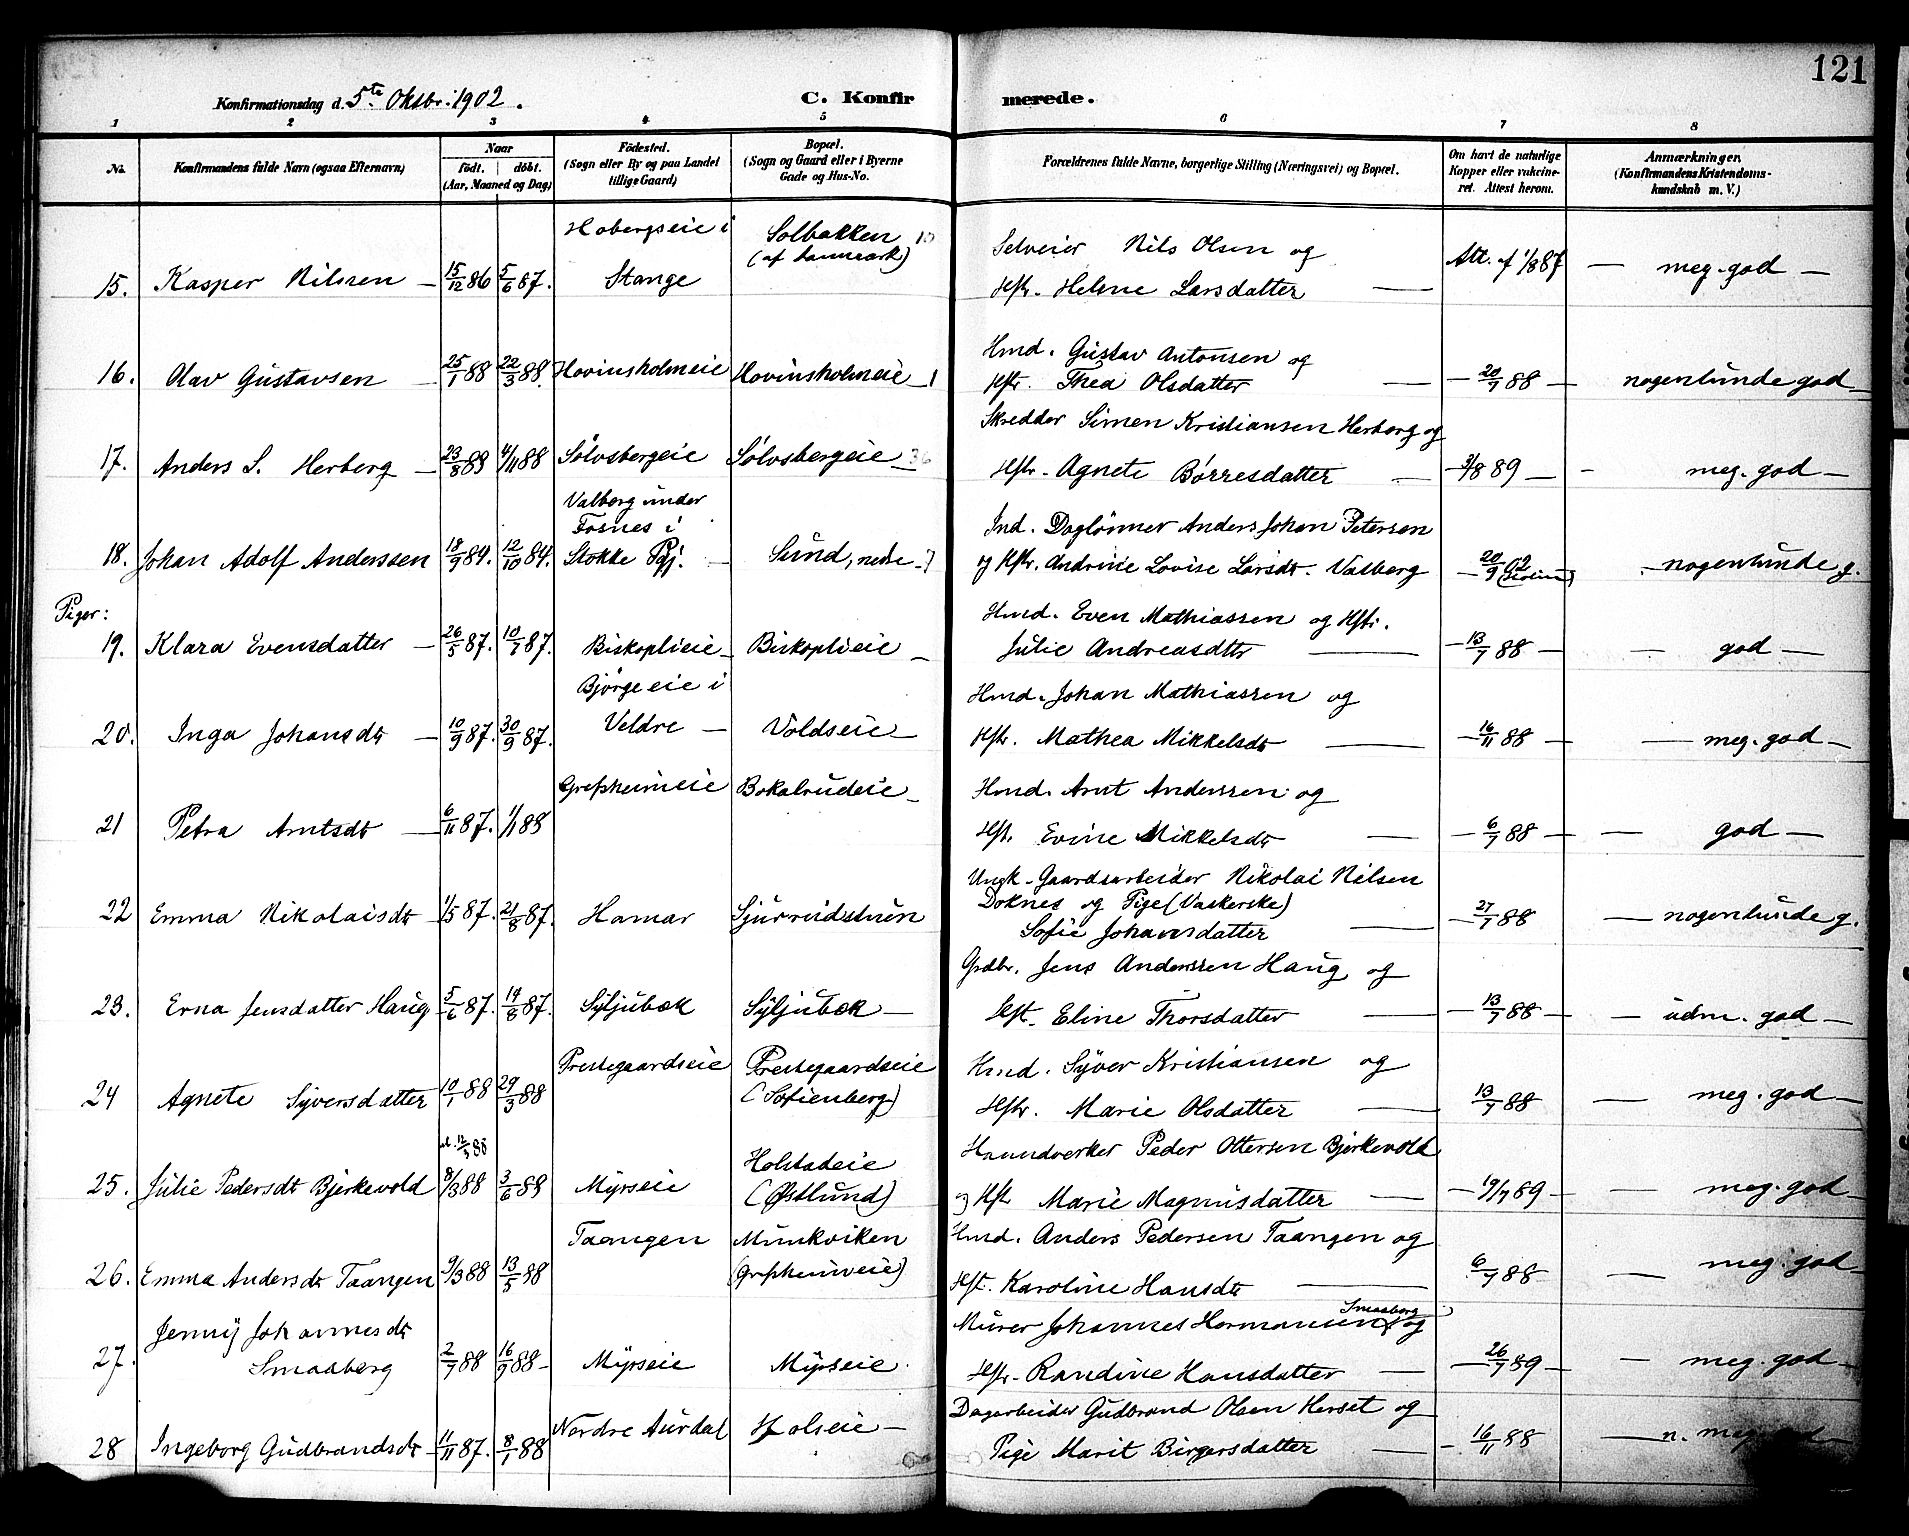 121
Konfirmationsdag d. 5te Oktbr. 1902.
C. Konfirmerede.
1 2 3 4 5 6 7 8
No. Konfirmandens fulde Navn (ogsaa Efternavn) Naar født. døbt. (Aar, Maaned og Dag) Fødested. (Sogn eller By og paa Landet tillige Gaard) Bopæl. (Sogn og Gaard eller i Byerne Gade og Hus-No. Forældrenes fulde Navne, borgerlige Stilling (Næringsvei) og Bopæl. Om havt de naturlige Kopper eller vakcineret. Attest herom. Anmærkninger. (Konfirmandens Kristendomskundskab m. V.)
15. Kasper Nilsen — 15/12 86 5/6 87. Hobergseie i Stange Solbakken Selveier Nils Olsen og Hstr. Helene Larsdatter — Att. af 1/8 87 — meg. god —
16. Olav Gustavsen — 25/1 88 22/3 88. Hovinsholmeie Hovinsholmeie Hmd. Gustav Antonsen og Hstr. Thea Olsdatter — 20/7 88 — nogenlunde god —
17. Anders S. Herberg — 23/8 88 4/11 88 Sølvsbergeie Sølvsbergeie Skredder Simen Kristiansen Herberg og Hstr. Agnete Børresdatter — 3/8 89 — meg. god —
18. Johan Adolf Anderssen 18/9 84. 12/10 84. Valberg under Fosnes i Stokke Pgj. — Sund, nedre Ind. Daglønner Anders Johan Petersen og Hstr. Andrine Lovise Larsdt. Valberg — 20/9 02 — nogenlunde g.
Piger:
19. Klara Evensdatter — 26/5 87. 10/7 87. Biskoplieie — Biskoplieie — Hmd. Even Mathiassen og Hstr. Julie Andreasdtr — 13/7 88 — god —
20. Inga Johansdtr — 10/9 87. 30/9 87. Bjørgeeie i Veldre — Voldseie — Hmd. Johan Mathiassen og Hstr. Mathea Mikkelsdtr — 16/11 88 — meg. god —
21 Petra Arntsdtr — 6/11 87. 1/1 88 Grefsheimeie Bokalrudeie — Hmd. Arnt Anderssen og Hstr. Evine Mikkelsdtr — 6/7 88 — god —
22 Emma Nikolaisdtr 1/5 87. 21/8 87. Hamar Sjurrudstuen Ungk. Gaardsarbeider Nikolai Nilsen Doknes og Pige (Vaskerske) Sofie Johannsdatter — 27/7 88 — nogenlunde g.
23. Erna Jensdatter Haug 5/6 87. 14/8 87. Syljubæk Syljubæk — Grdbr. Jens Anderssen Haug og Hst. Eline Thorsdatter — 13/7 88 — udm. god —
24 Agnete Syversdatter 10/1 88 29/3 88 Prestegaardseie Prestegaardseie (Sofienberg) Hmd. Syver Kristiansen og Hstr. Marie Olsdatter — 13/7 88 — meg. god —
25. Julie Pedersdt Bjerkevold 8/3 88 3/6 88 Myrseie Holstadeie (Østlund) Haandverker Peder Ottersen Bjerkevold og Hstr Marie Magnusdatter — 19/7 89 — meg. god —
26. Emma Andersdtr Taangen 9/3 88 13/5 88 Taangen Munkviken (Grefsheimeie) Hmd. Anders Pedersen Taangen og Hst. Karoline Hansdtr — 6/7 88 — meg. god —
27. Jenny Johannesdtr Smaaberg 2/7 88 16/9 88 — Myrseie Myrseie Murer Johannes Hermansen Smaaberg og Hstr. Randine Hansdatter — 26/7 89 — meg. god —
28 Ingeborg Gudbrandsdtr 11/11 87. 8/1 88 Nordre Aurdal Holseie — Dagarbeider Gudbrand Olsen Herset og Pige Marit Birgersdatter — 16/11 88 — n. meg.